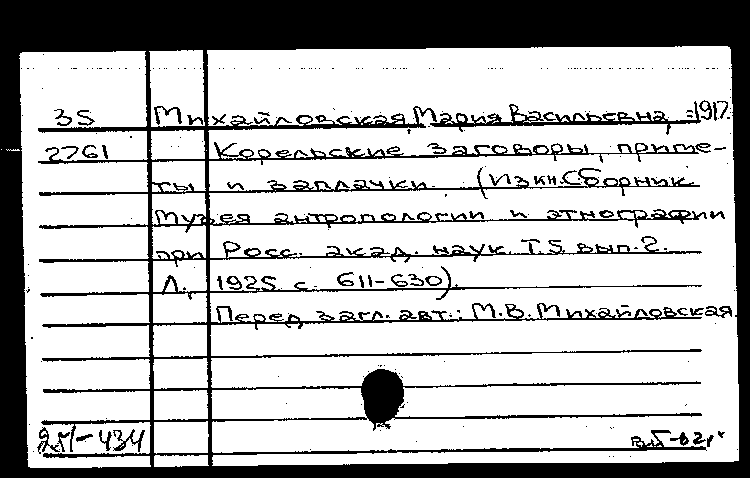 35 Михайловская, Мария Васильевна, -1917.
2761 Корельские заговоры, приме-
ты и заплачки. (Из кн. Сборник
музея антропологии и этнографии
при Росс. акад. наук. Т.5 вып.2.
Л., 1925 с. 611-630).
Перед загл. авт.: М.В. Михайловская.